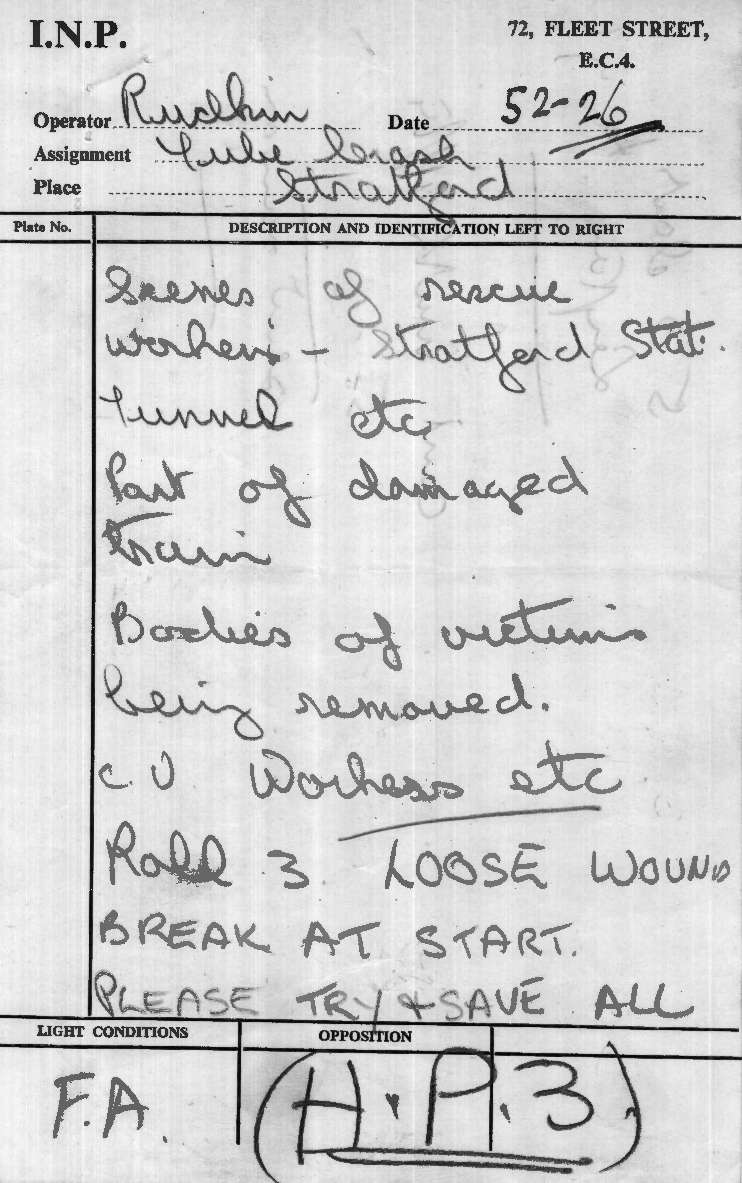 I.N.P.
72, FLEET STREET,
E.C.4.
Operator Rudkin Date 52-26
Assignment Tube Crash
Place Stratford
Plate No. DESCRIPTION AND IDENTIFICATION LEFT TO RIGHT
Scenes of rescue
workers - Stratford Stat.
Tunnel etc
Part of damaged
train
Bodies of victims
being removed.
C.U Workers etc
Roll 3 LOOSE WOUND
BREAK AT START.
PLEASE TRY + SAVE ALL
LIGHT CONDITIONS OPPOSITION
F.A. (H.P.3.)